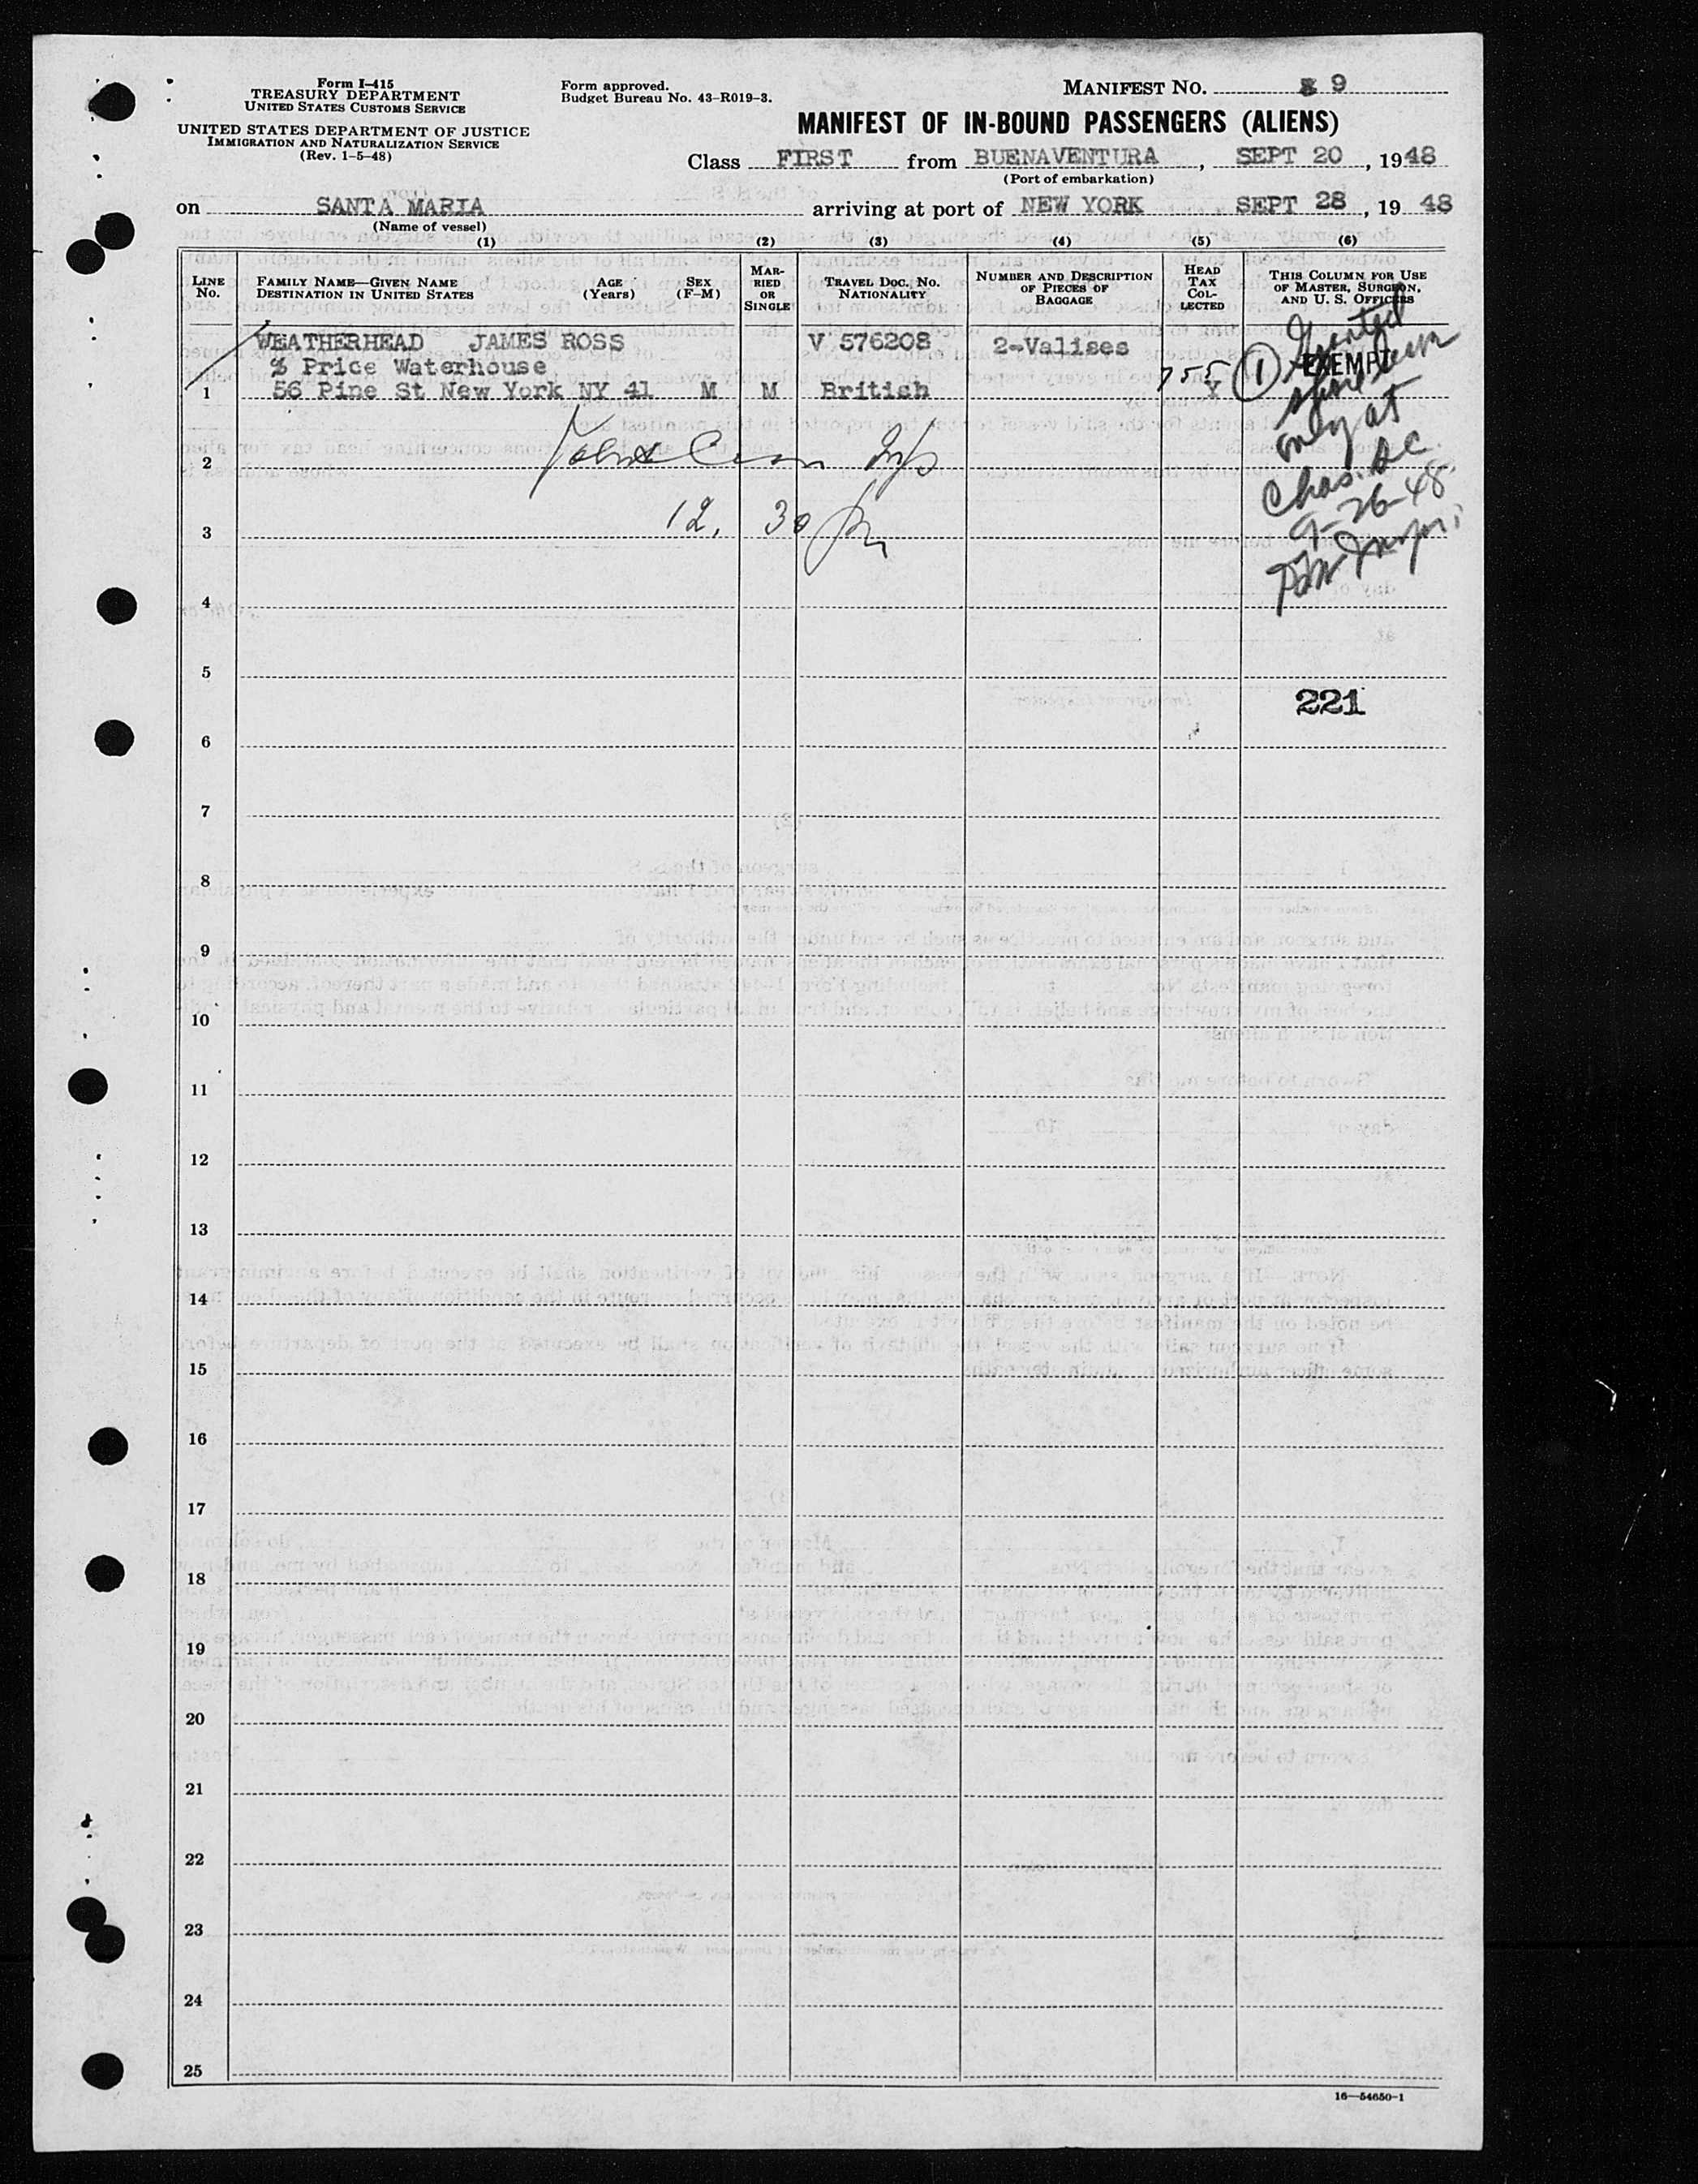 Form I-415
TREASURY DEPARTMENT
UNITED STATES CUSTOMS SERVICE
UNITED STATES DEPARTMENT OF JUSTICE
IMMIGRATION AND NATURALIZATION SERVICE
(Rev. 1-5-48)
Form approved.
Budget Bureau No. 43-R019-3.
MANIFEST NO. 9
MANIFEST OF IN-BOUND PASSENGERS (ALIENS)
Class FIRST from BUENAVENTURA, SEPT 20, 1948
(Port of embarkation)
on SANTA MARIA arriving at port of NEW YORK SEPT 28, 19 48
(Name of vessel)
(1) (2) (3) (4) (5) (6)
LINE No.
FAMILY NAME—GIVEN NAME
DESTINATION IN UNITED STATES
AGE (Years)
SEX (F-M)
MARRIED OR SINGLE
TRAVEL DOC. NO.
NATIONALITY
NUMBER AND DESCRIPTION OF PIECES OF BAGGAGE
HEAD TAX COLLECTED
THIS COLUMN FOR USE OF MASTER, SURGEON, AND U. S. OFFICERS
WEATHERHEAD JAMES ROSS V 576208 2-Valises
% Price Waterhouse
1 56 Pine St New York NY 41 M M British Y
755
1
EXEMPT
Granted
shore leave
only at
Chas. SC
9-26-48
2
3 12, 30
4
5
221
6
7
8
9
10
11
12
13
14
15
16
17
18
19
20
21
22
23
24
25
16—54650-1